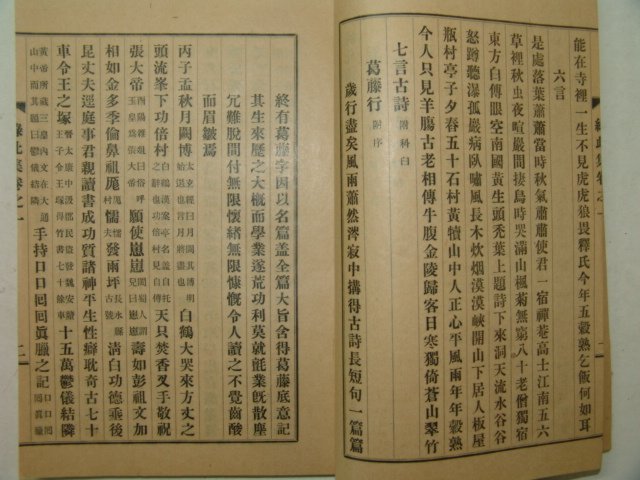 能在寺裡一生不見虎虎狼畏釋氏今年五穀熟乞飯何如耳
六言
是處落葉蕭蕭當時秋氣蕭蕭使君一宿禪菴高士江南五六
草裡秋虫夜喧巖間棲鳥時哭滿山楓菊無窮八十老僧獨宿
東方白傅眼空南國黃生頭禿巷上題詩下來洞天流水谷谷
怒蹲聽瀑孤嚴病臥嘯風長木炊烟漠漠峽開山下居人板屋
瓶村亭子夕舂五十石村黃犢山中人正心平風雨年年穀熟
今人只見羊腸古老相傳牛腹金陵歸客日寒獨倚蒼山翠竹
七言古詩 附科白
葛藤行 附序
歲行盡矣風雨蕭然滓寂中搆得古詩長短句一篇篇
終有葛藤字因以名篇盖全篇大旨含得葛藤底意記
其生來歷之大槪而學業遂荒功利莫就能業旣散塵
冗難脫間付無限懷緖無限慷慨令人讀之不覺齒酸
而眉皺焉
丙子孟秋月闕博 白鶴大哭來方丈之
頭流峯下功倍村 天只焚香叉手敬祝
張大帝 願使崽崽 壽如彭祖文加
相如金多季倫鼻祖 村 懦夫發兩坪 淸白功德乘後
昆丈夫逕庭事君親讀書成功質諸神平生性癖耽奇古七十
車令王之塚 十五萬鬱儀結隣
手持日日囘囘眞臘之記